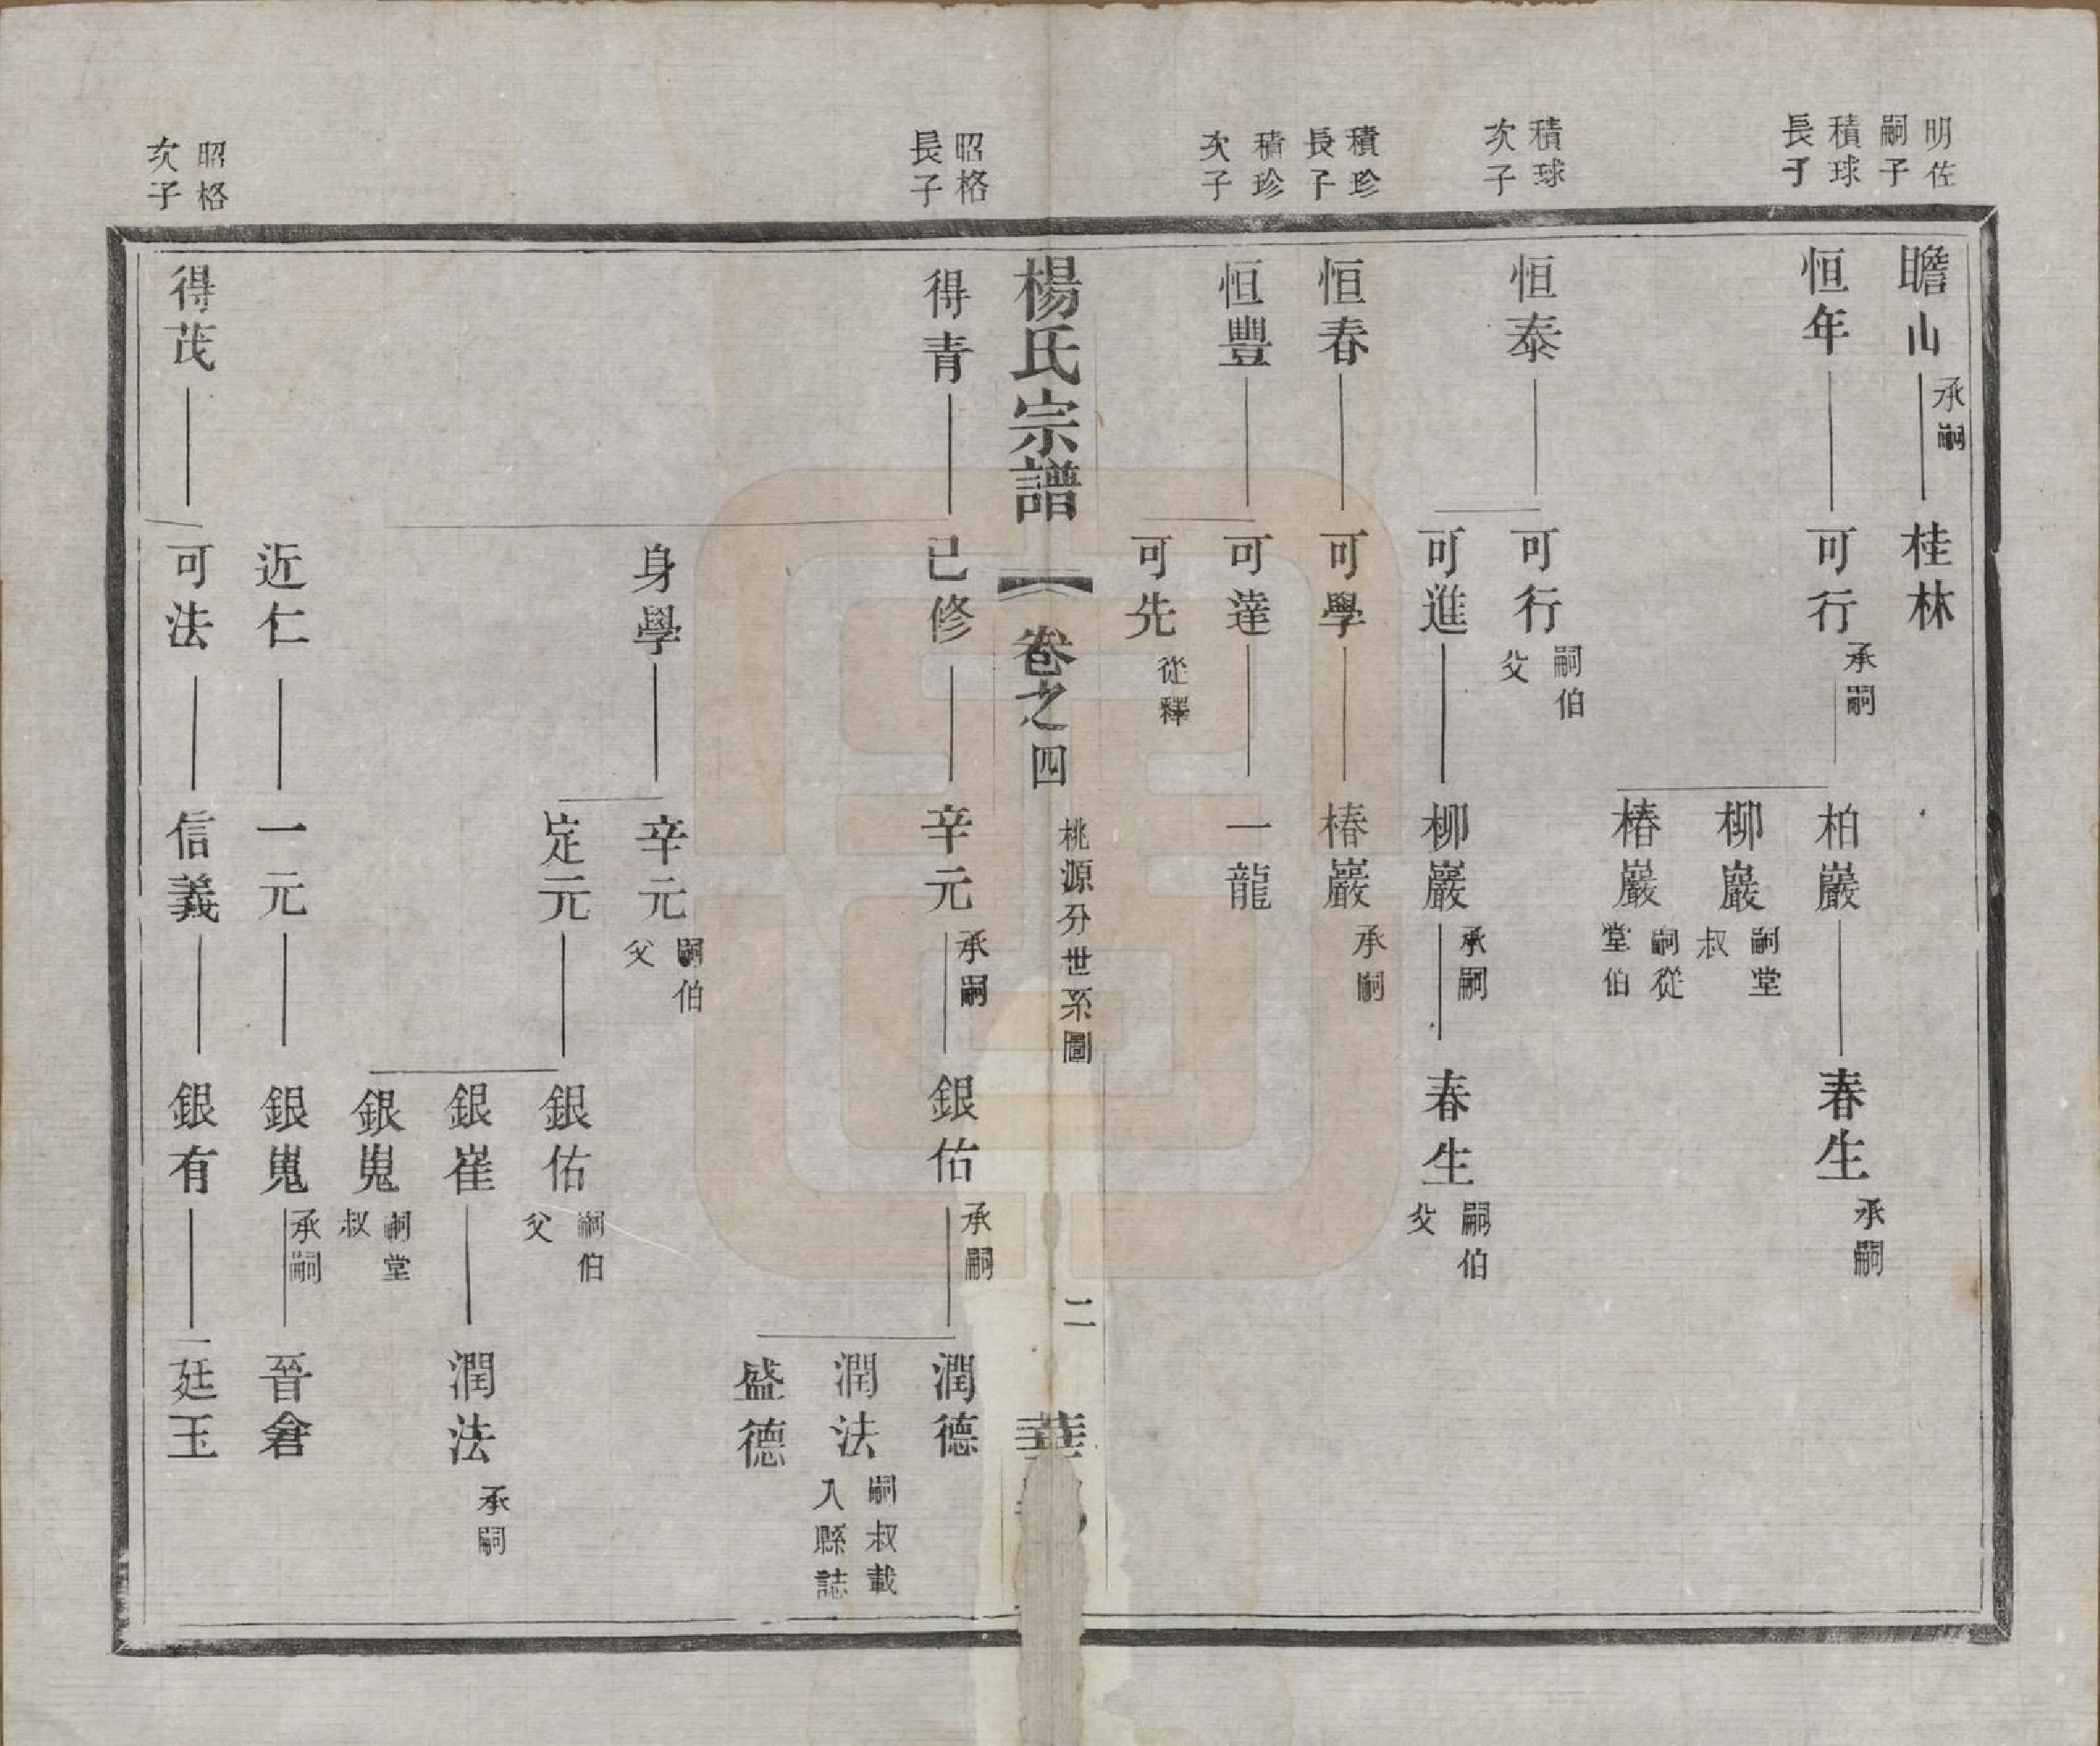 明佐
嗣子
瞻山
承嗣
桂林
積球
長子
恒年
可行
承嗣
柏巖
春生
承嗣
柳巖
嗣堂
叔
椿巖
嗣從
堂伯
積球
次子
恒泰
可行
嗣伯
父
可進
柳巖
承嗣
春生
嗣伯
父
積珍
長子
恒春
可學
椿巖
承嗣
積珍
次子
恒豐
可達
一龍
可先
從釋
楊氏宗譜
卷之四
桃源分世系圖
二
華
昭格
長子
得青
已修
辛元
承嗣
銀佑
承嗣
潤德
潤法
嗣叔載
入縣誌
盛德
身學
辛元
嗣伯
父
定元
銀佑
嗣伯
父
銀崔
潤法
承嗣
銀嵬
嗣堂
叔
近仁
一元
銀嵬
承嗣
晉倉
昭格
次子
得茂
可法
信義
銀有
廷玉